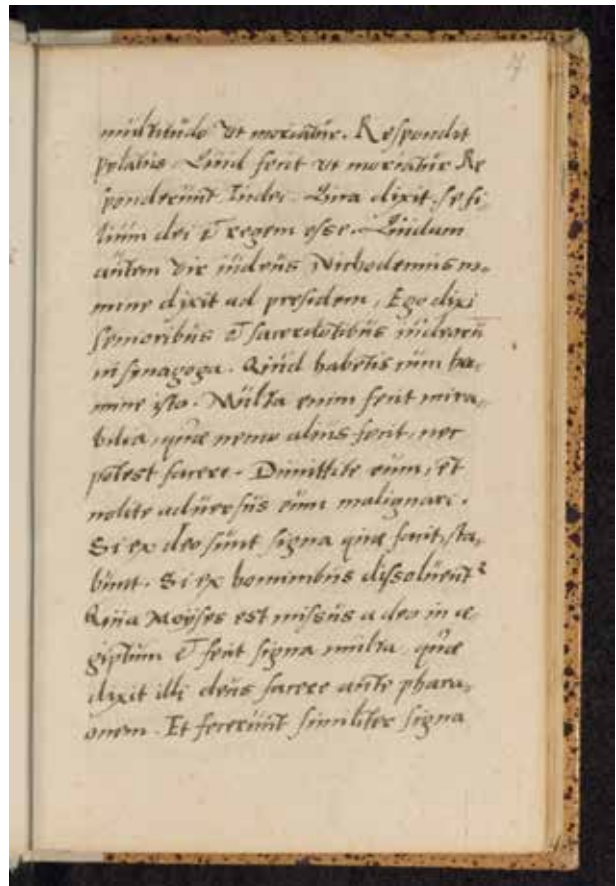 7
multitudo vt moriatur. Respondit
pylatus Quid fecit vt moriatur Re
sponderunt Iudei. Quia dixit se fi,
lium dei & regem esse. Quidam
autem vir iudeus Nichodemus no,
mine dixit ad presidem, Ego dixi
senioribus & sacerdotibus iudeorū
in sinagoga. Quid habetis cum ho,
mine isto. Multa enim fecit mira,
bilia, quæ nemo alius fecit, nec
potest facere. Dimittite eum, et
nolite aduersus eum malignari.
Si ex deo sunt signa quæ fecit, sta,
bunt. Si ex hominibus dissoluentᵣ
Quia Moyses est missus a deo in æ,
giptum & fecit signa multa, quæ
dixit illi deus facere ante phara,
onem. Et fecerunt similiter signa